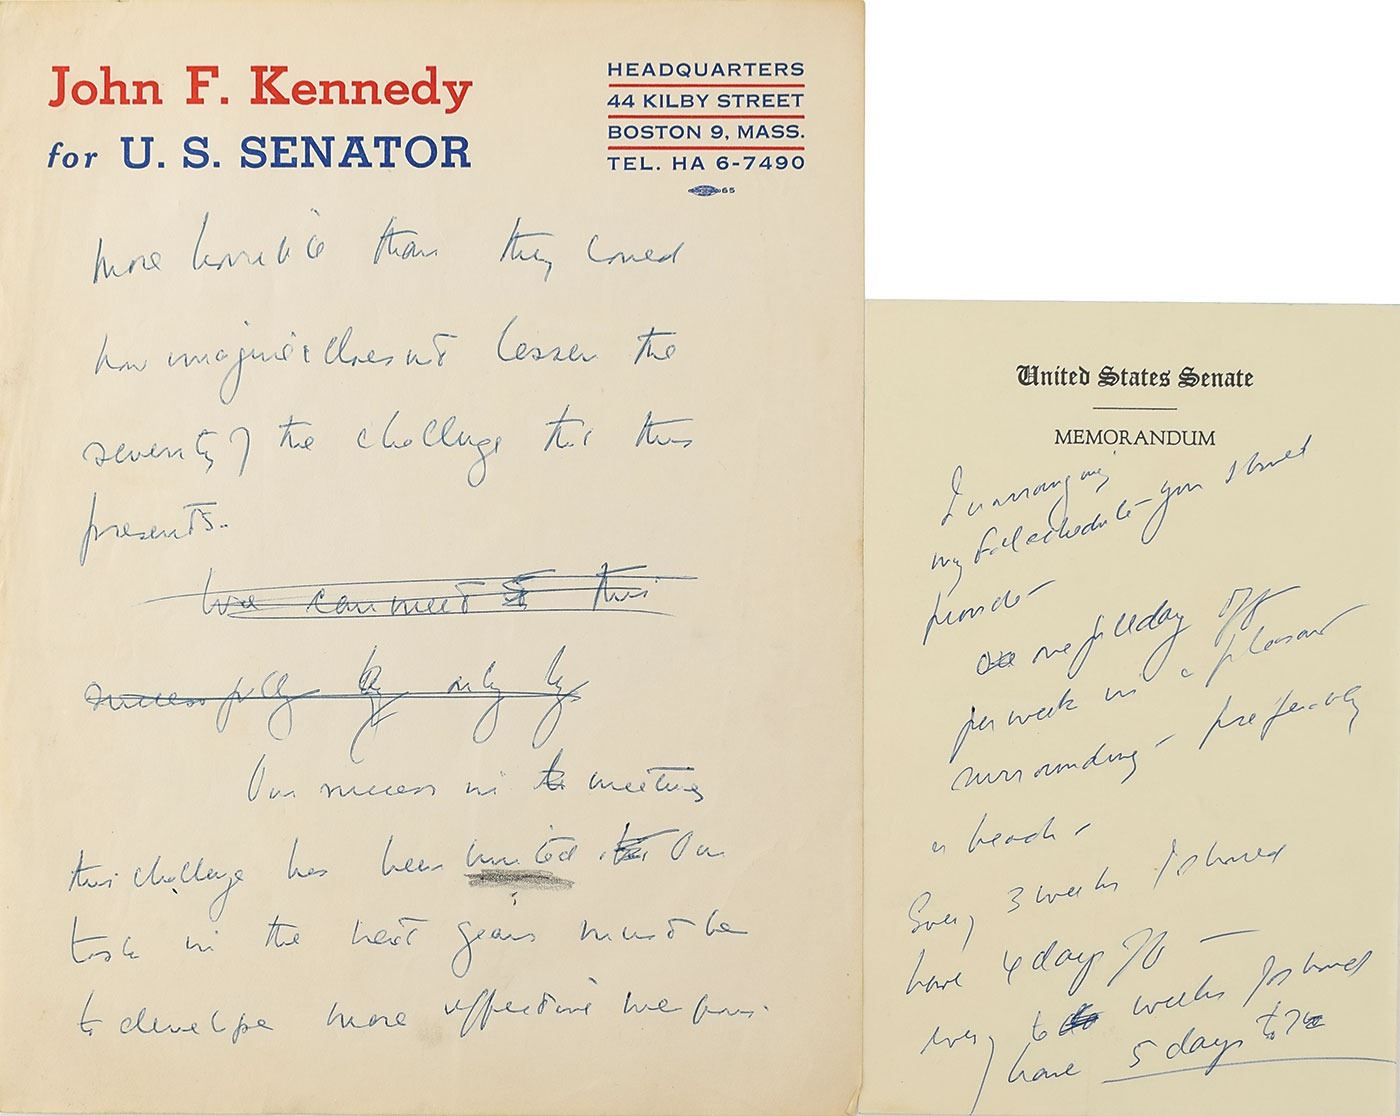 John F. Kennedy
for U. S. SENATOR
HEADQUARTERS
44 KILBY STREET
BOSTON 9, MASS.
TEL. HA 6-7490
65
more horrible than they could
now imagine doesn't lessen the
severity of the challenge that this
presents.
We can meet this
successfully by only by
Our success in meeting
this challenge has been limited Our
task in the next years must be
to develope more effective weapons.
United States Senate
MEMORANDUM
In arranging
my Fall schedule - you should
provide -
one full day off
per week in a pleasant
surrounding - preferably
a beach -
Every 3 weeks I should
have 4 days off -
every 6 weeks I should
have 5 days to 7